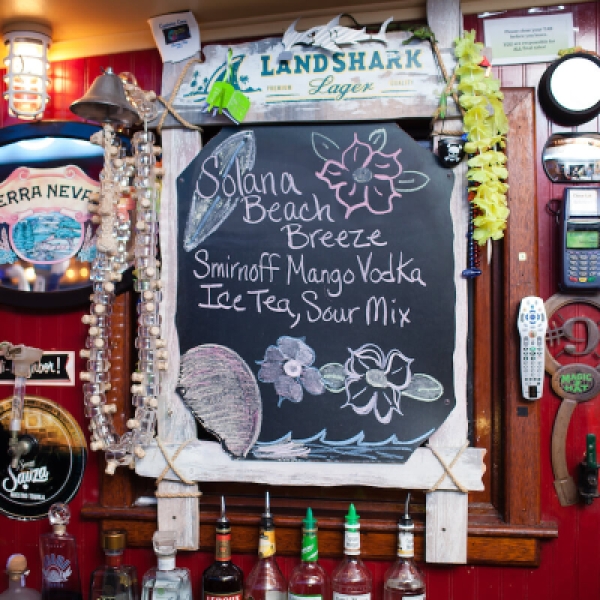 LANDSHARK
PREMIUM Lager QUALITY
Solana
Beach
Breeze
Smirnoff Mango Vodka
Ice Tea, Sour Mix
ERRA NEVA
Sauza
#9
MAGIC
HAT